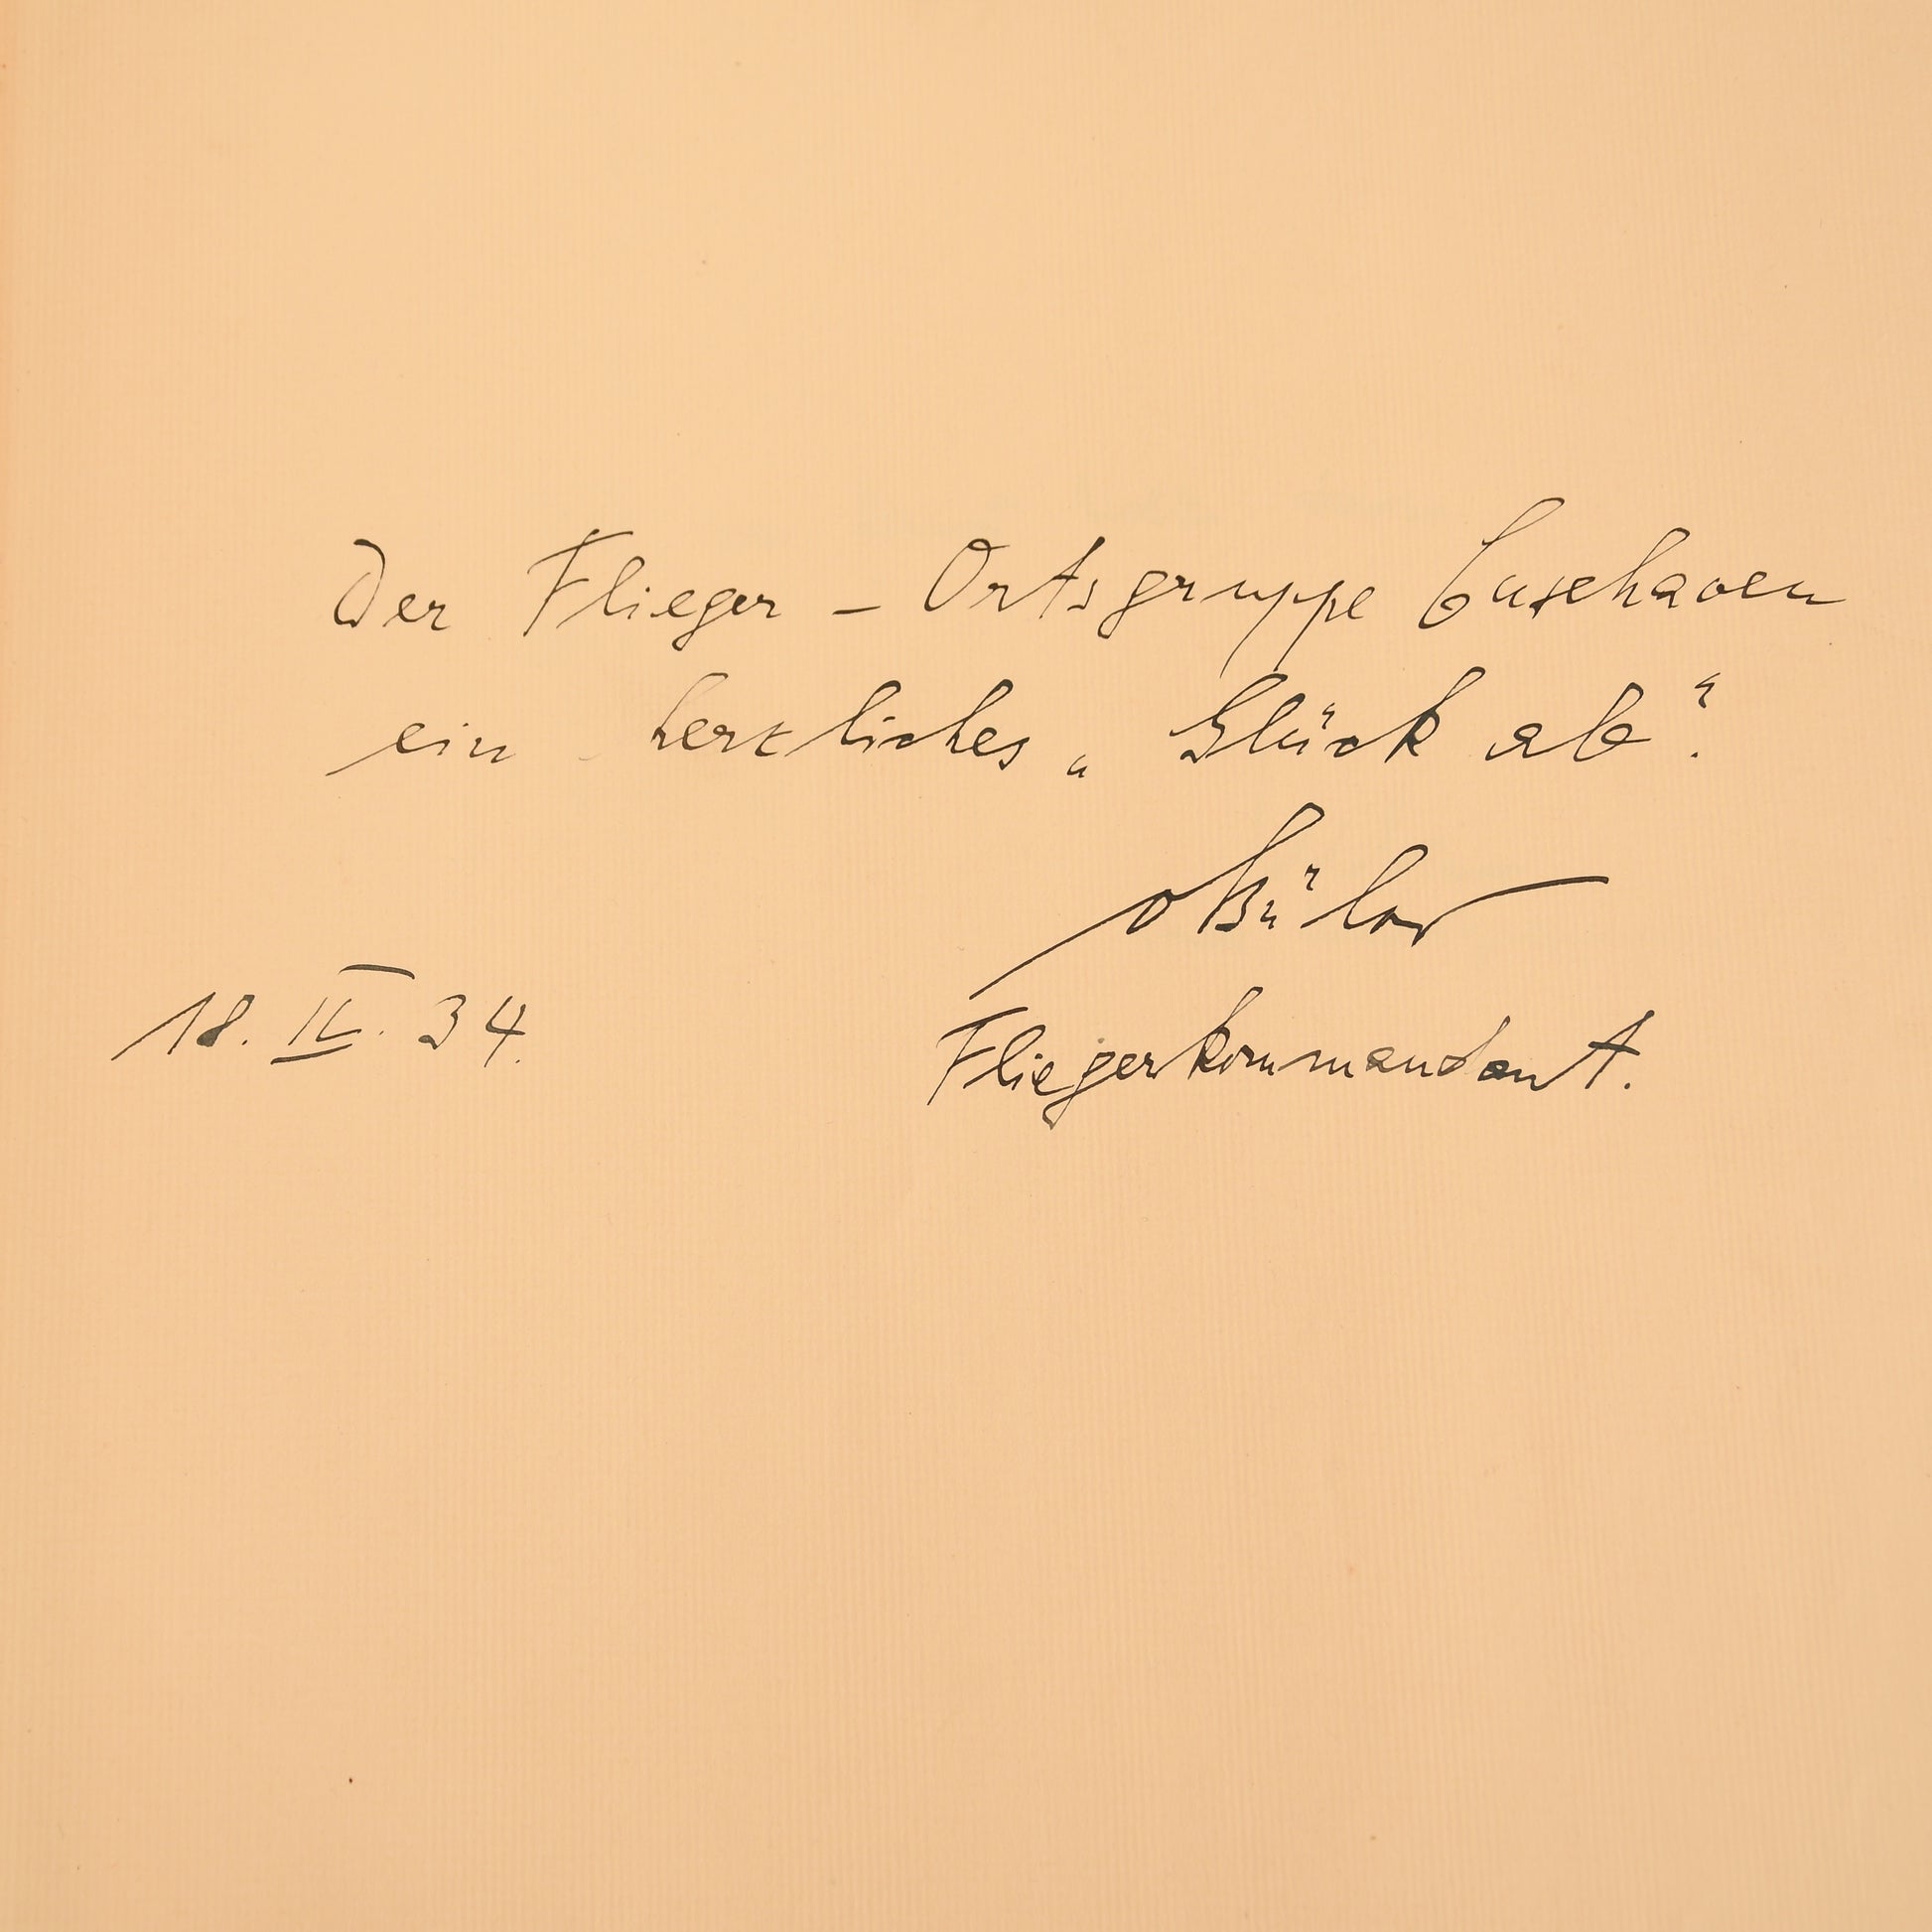 Der Flieger - Ortsgruppe Cuxhaven
ein herzliches „Glück ab“.
v Bülow
18. IV. 34.
Fliegerkommandant.